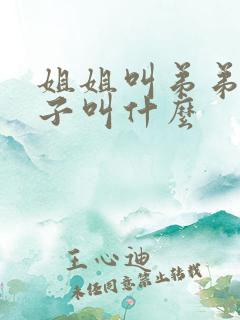 姐姐叫弟弟
子叫什麼
王心迪
未经同意禁止转载